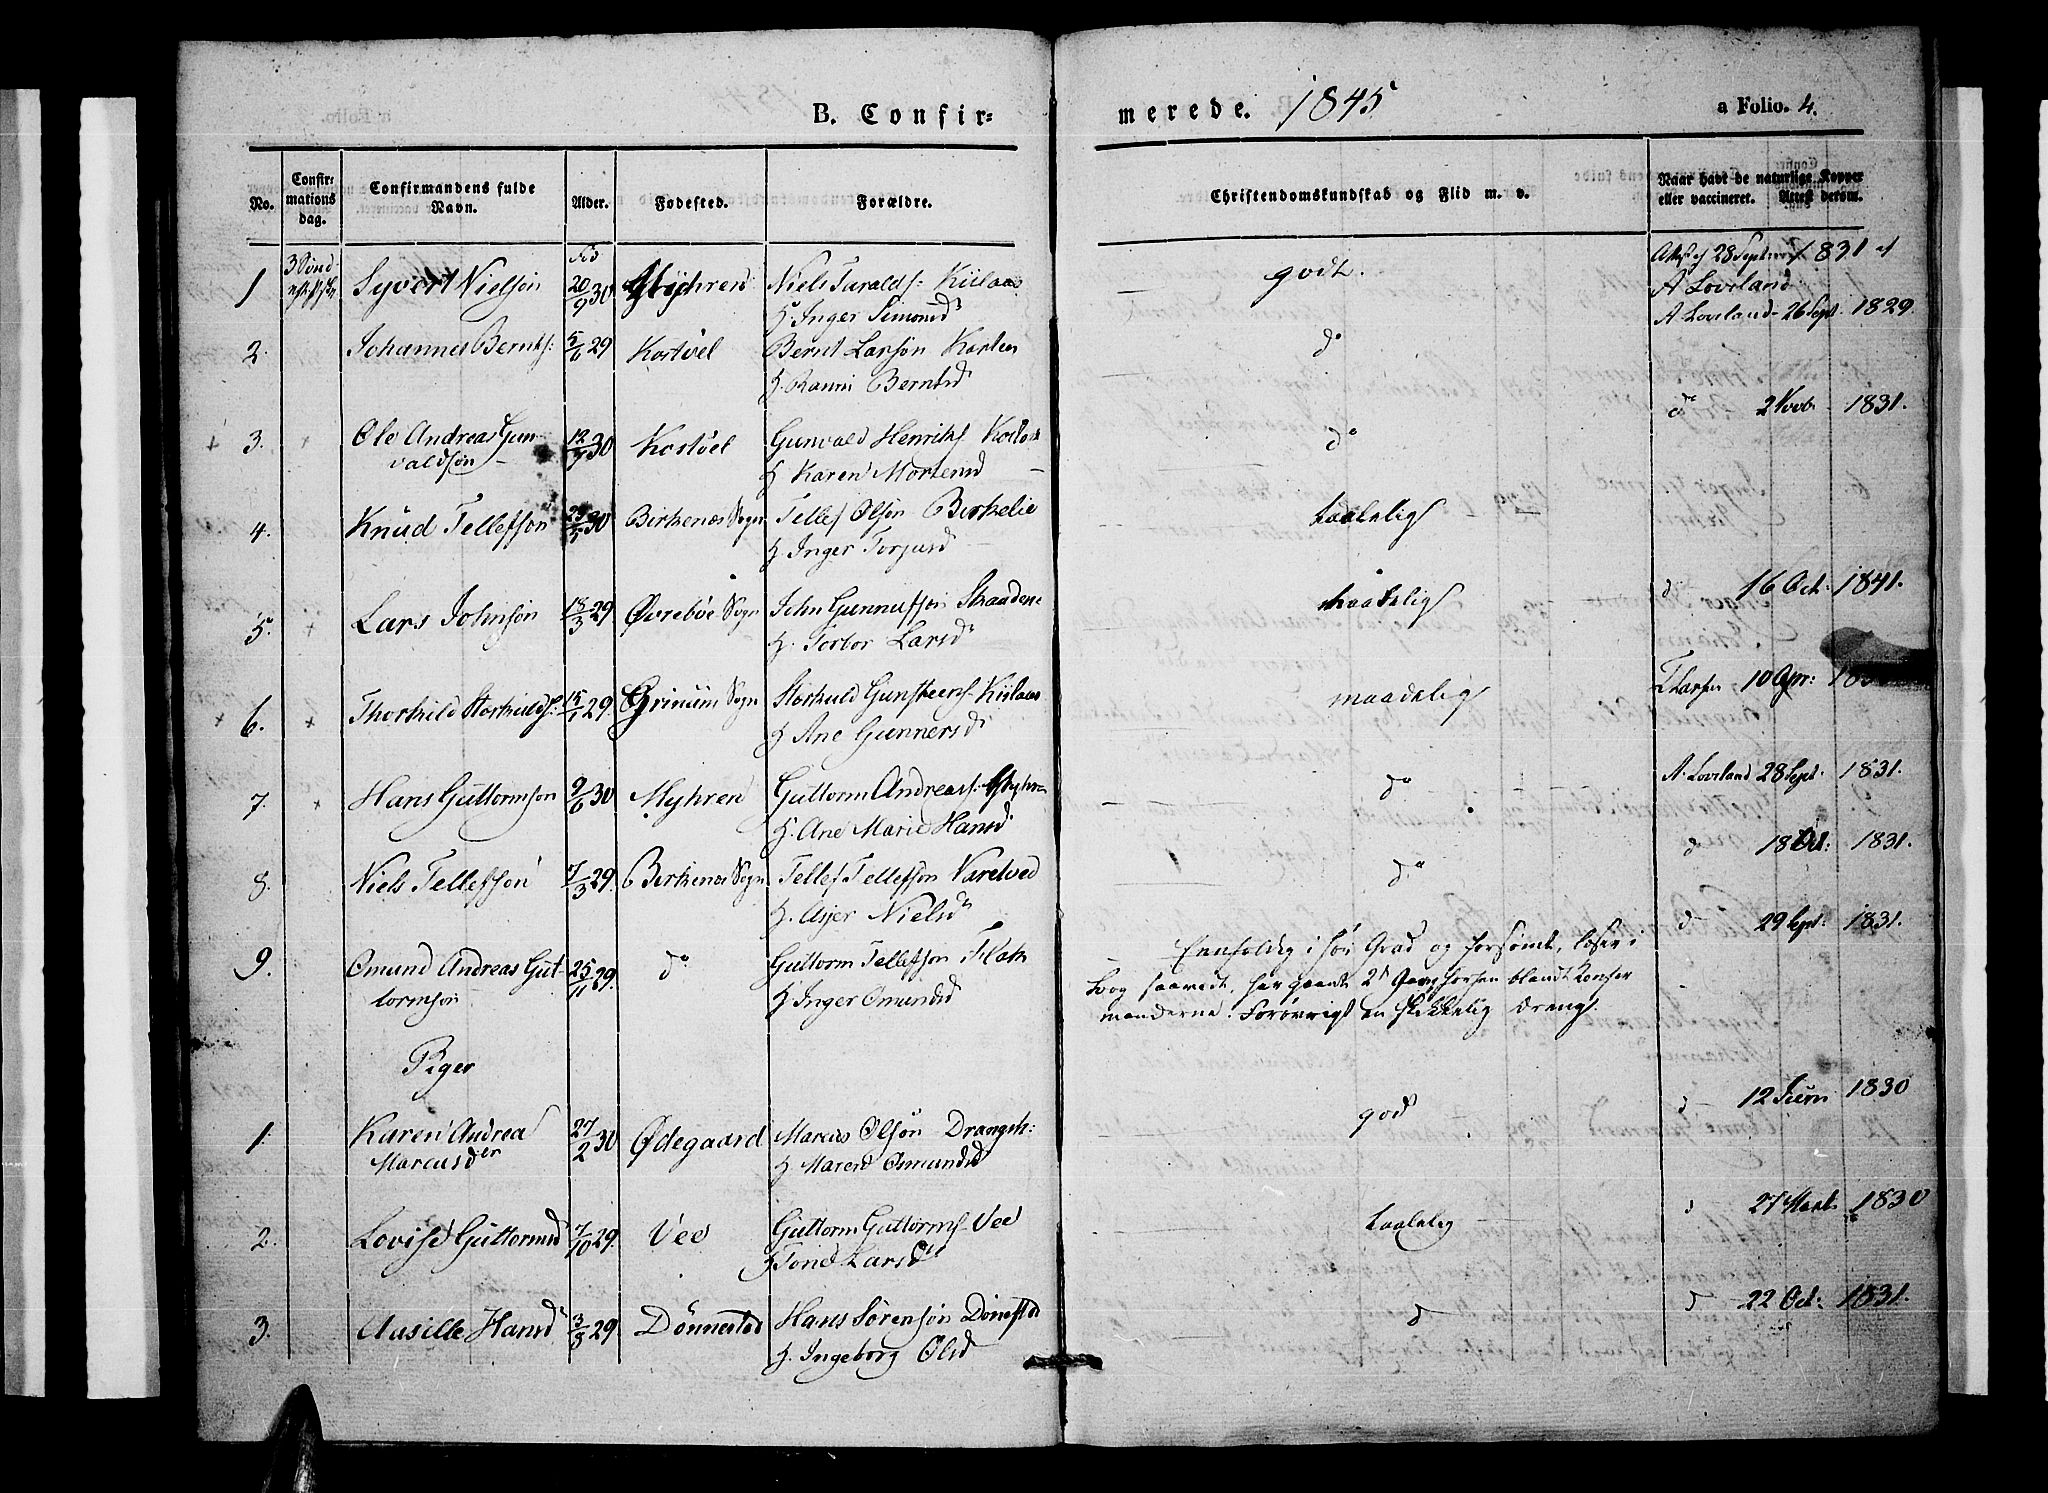 B. Confir=
merede. 1845
a Folio. 4.
No.
Confir=
mations
dag.
Confirmandens fulde
Navn.
Alder.
Fødested.
Forældre.
Christendomskundskab og Flid m. v.
Naar havt de naturlige Kopper
eller vaccineret. Attest derom.
1 Syvert Nielsøn fød 20/9 30 Myhren Niels Taralds:
H. Inger Simonsd godt. 28 Septemr 1831 af
A Loveland
2. Johannes Bernts: 5/6 29 Kostöel Bernt Larsøn
H. Ranni Berntsd do A. Loveland 26 Sept. 1829
3. Ole Andreas Gun-
valdsøn 12/7 30 Kostöel Gunvald Henriks
H. Karen Mortensd do do 2 Novb 1831.
4. Knud Tellefsøn 30 Birkenes Sogn Tellef Olsøn Birkelie
H. Inger Torjusd taalelig
5. Lars Johnsøn 18/3 29 Øvrebøe Sogn John Gunnufsøn
H. Torbor Larsd maadelig d 16 Oct. 1841.
6. Thorkild Storkulds: 15/1 29 Grinum Sogn Storkuld Gunsteens:
H. Ane Gunnersd maadelig 10 Apr:
7. Hans Guttormsøn 9/6 30 Myhren Guttorm Andreass: Myhren
H. Ane Marie Hansd do A. Loveland 28 Sept. 1831.
8. Niels Tellefsøn 7/3 29. Birkenes Sogn Tellef Tellefsøn
H. Asjer Nielsd do d 18 Oct: 1831.
9. Omund Andreas Gut-
tormsøn 25/11 29. do Guttorm Tellefsøn Flak
H Inger Omundsd Eenfoldig i høi Grad og forsømt, læser i
Bog saavidt, har gaaet 2d Gang forhen blandt Konfir
manderne. Forøvrigt en skikkelig Dreng.
d 29 Sept: 1831.
Piger
1. Karen Andrea
Marcusder 27/2 30 Ødegaard Marcus Olsøn Drangsh:
H Maren Osmundsd god d 12 Juni 1830
2. Lovise Guttormsd 7/10 29. Vee Guttorm Guttorms Vee
H Tone Larsd taalelig d 27 Marts 1830
3. Aasille Hansd 3/8 29 Dönnestad Hans Sørensøn Dönestad
H. Ingeborg Olsd d d 22 Oct: 1831.